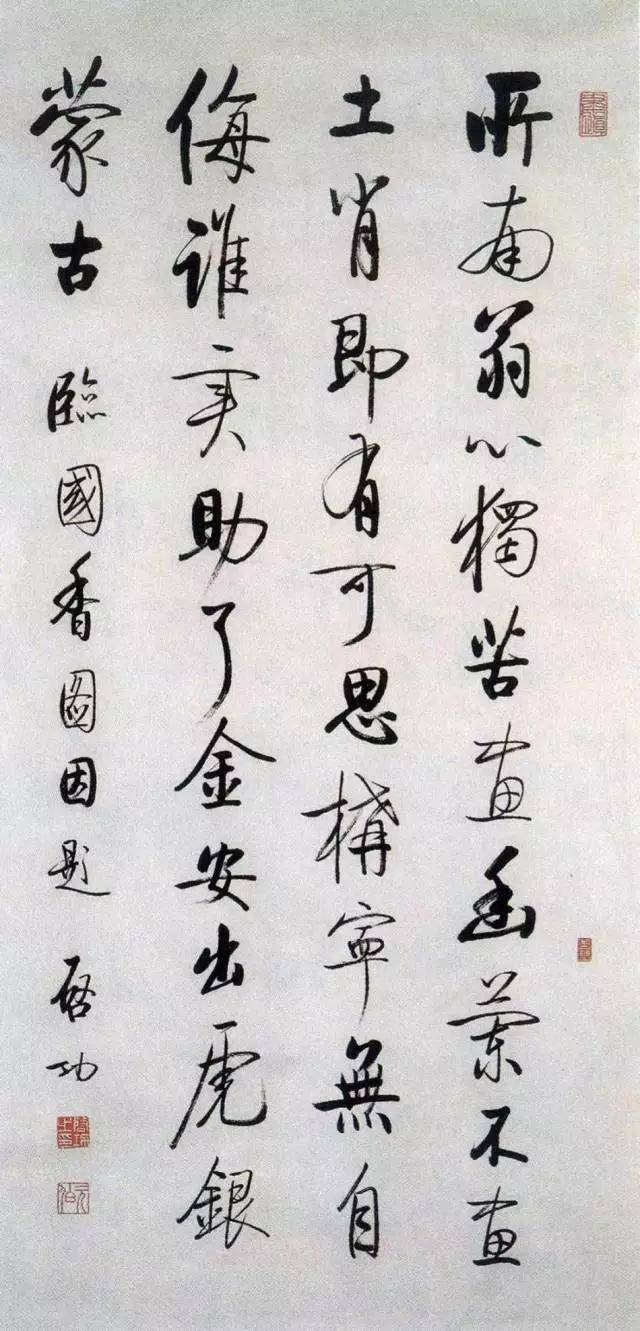 所南翁心獨苦画幽蘭不画
土肖即有可思構寧無自
侮誰实助了金安出虎銀
蒙古 臨國香圖因題 启功